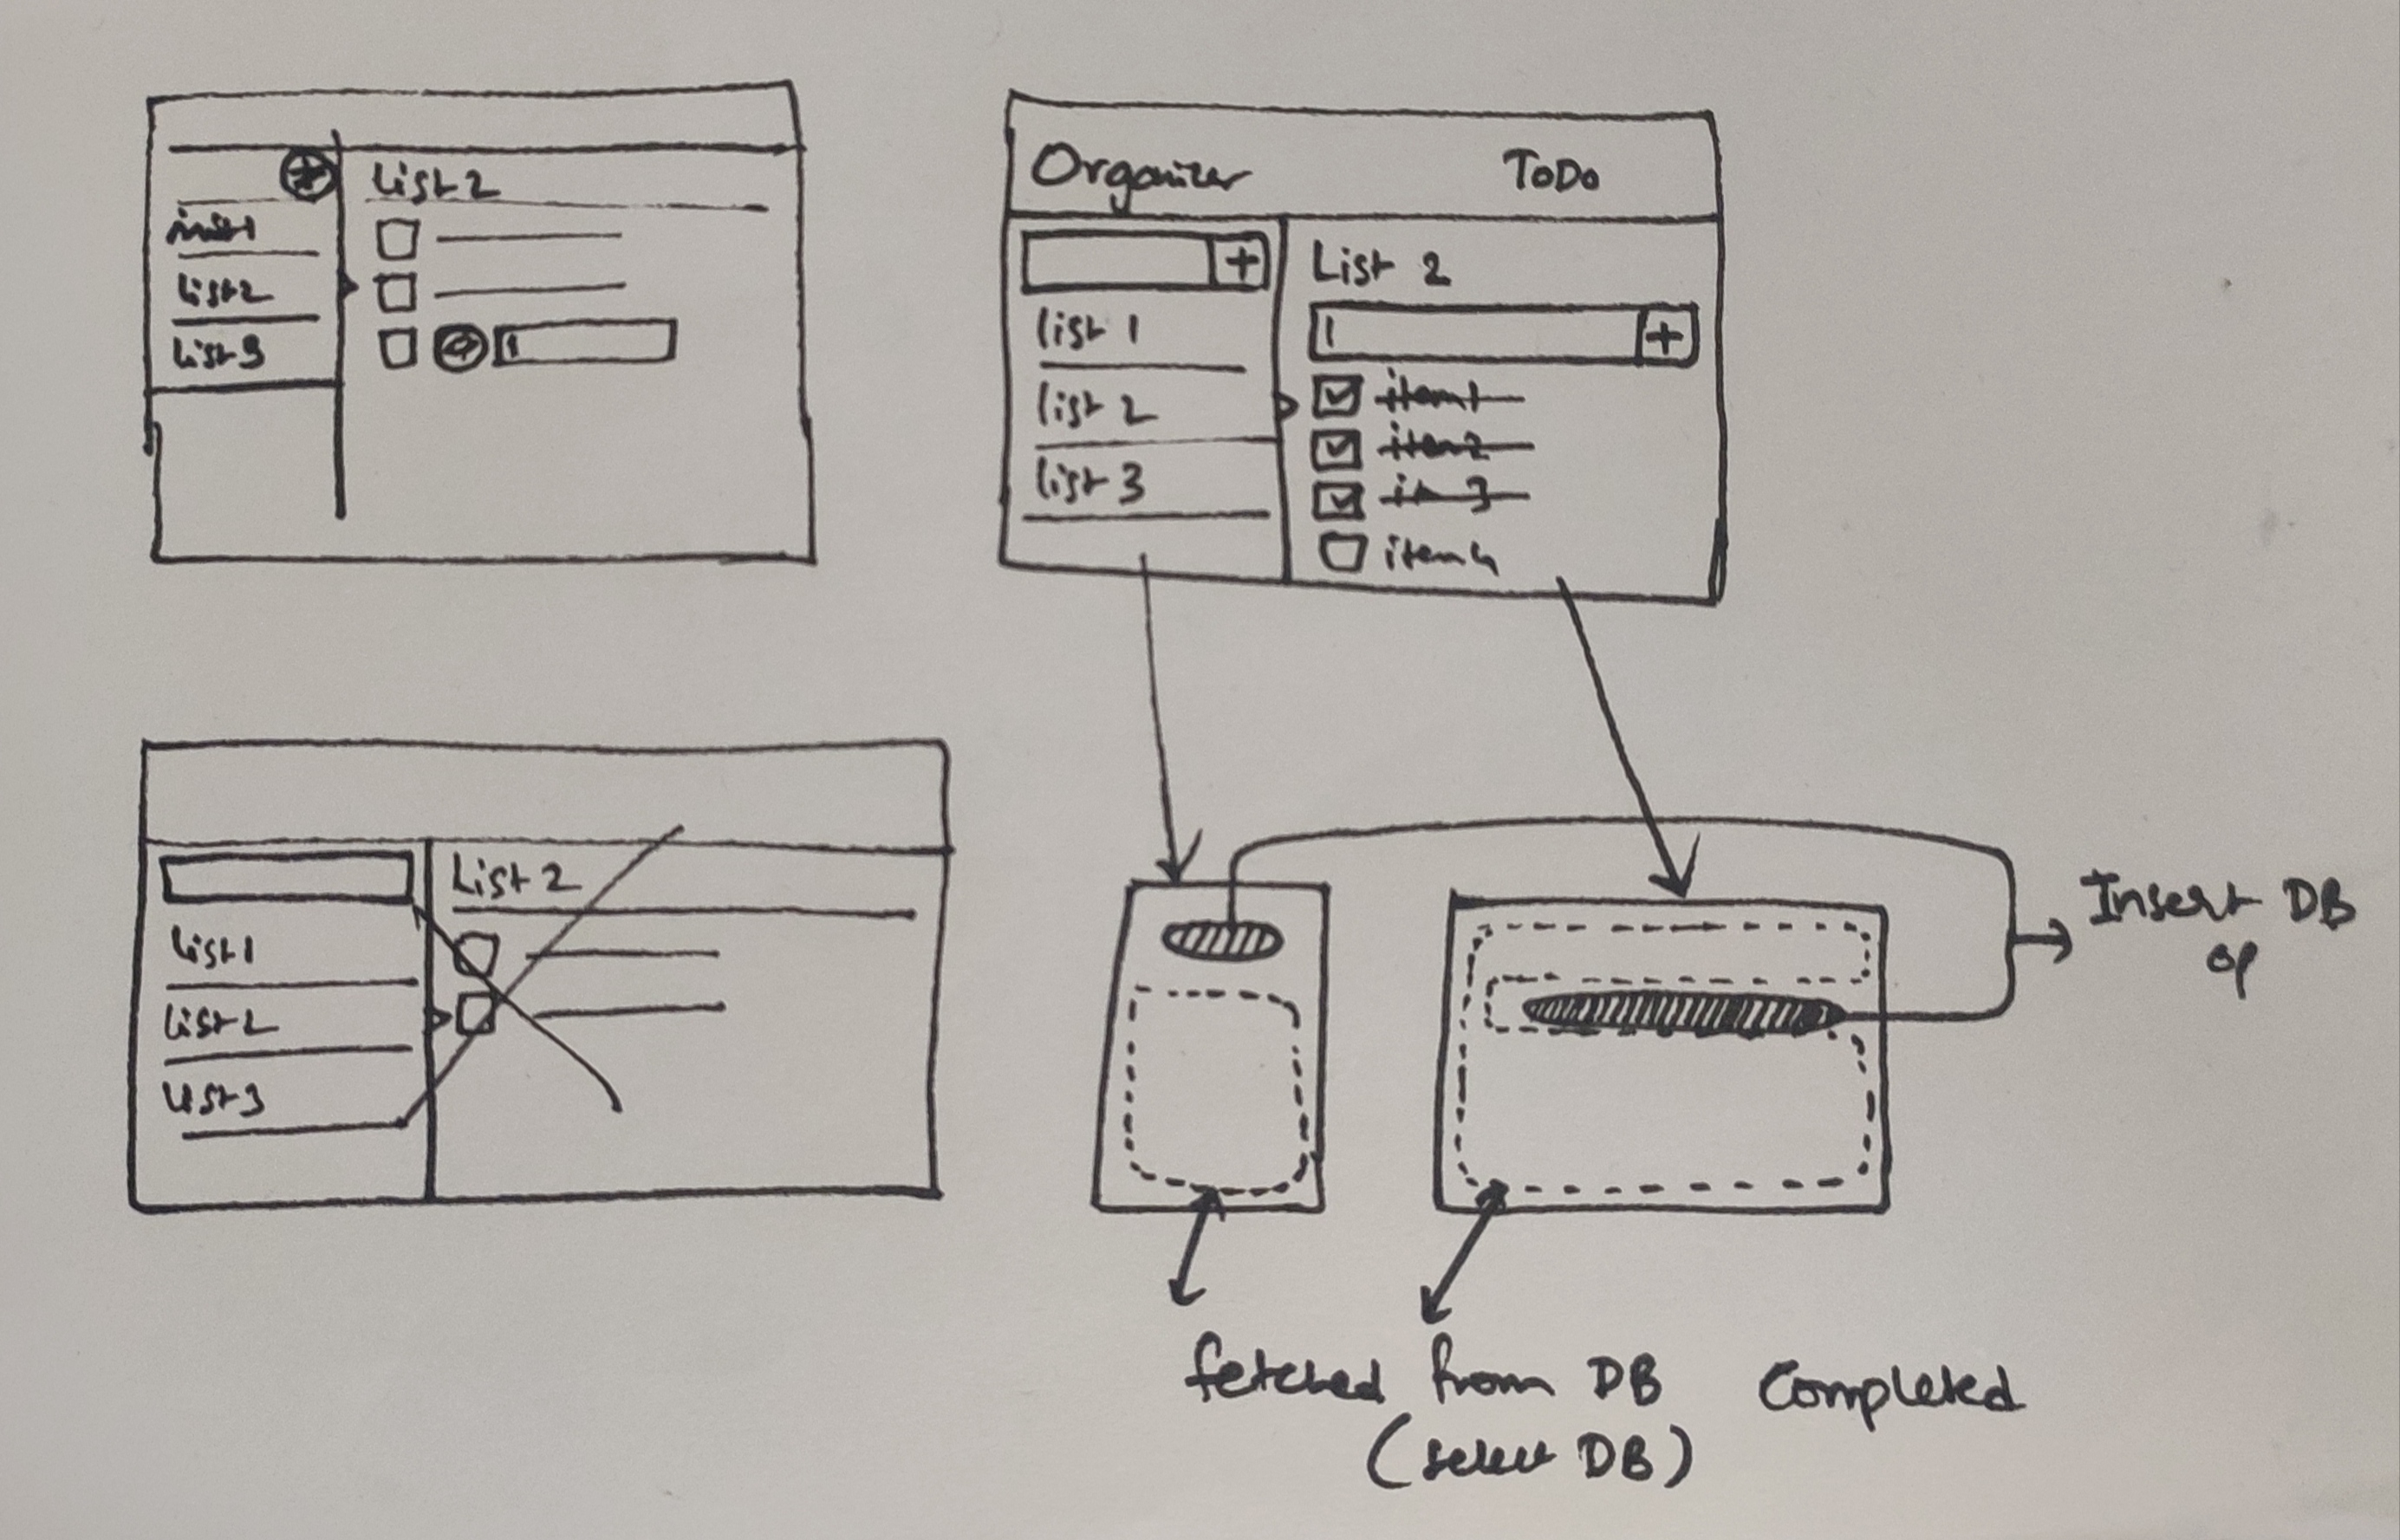 List 2
list 2
list 3
Organizer
ToDo
+
List 2
+
list 1
list 2
list 3
item 1
item 2
it 3
item 4
List 2
list 1
list 2
list 3
Insert DB
op
fetched from DB
(select DB)
Completed